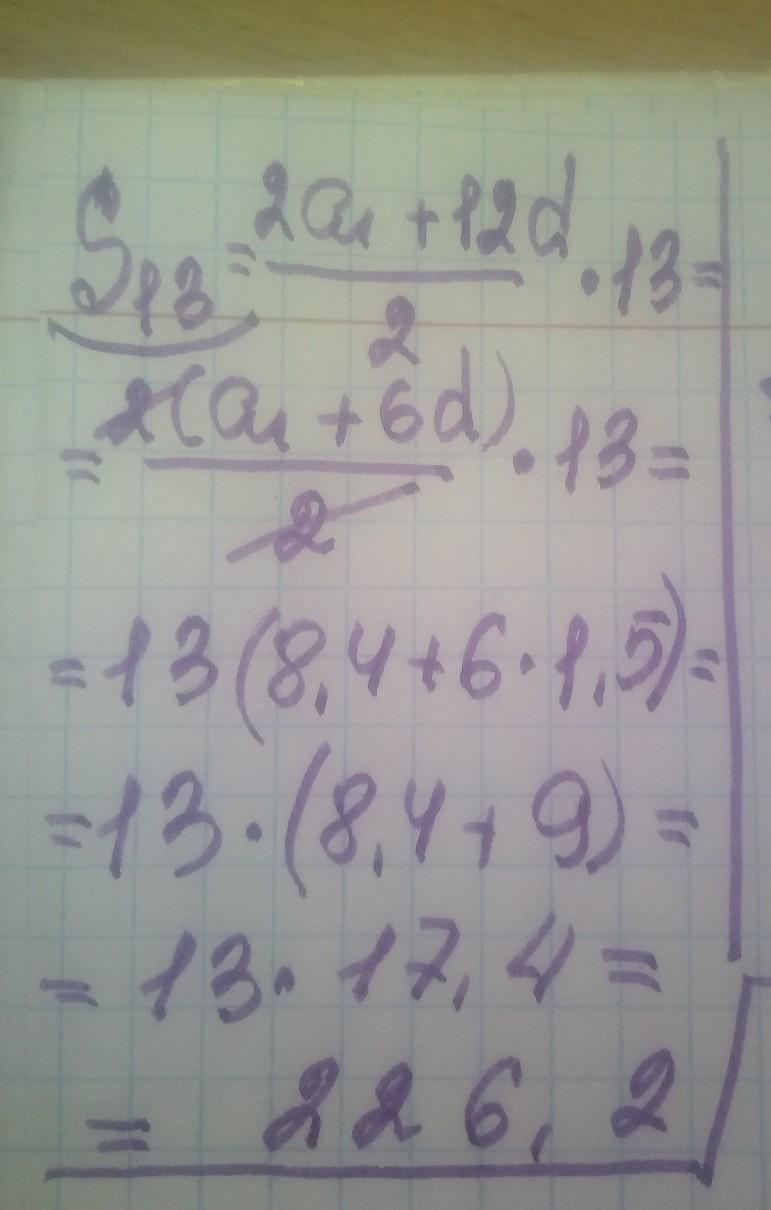 S₁₃ = (2a₁ + 12d)/2 · 13 =
= 2(a₁ + 6d)/2 · 13 =
= 13(8,4 + 6 · 1,5) =
= 13 · (8,4 + 9) =
= 13 · 17,4 =
= 226,2